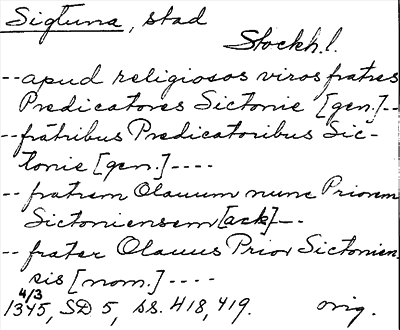 Sigtuna, stad
Stockh.l.
-- apud religiosos viros fratres
Predicatores Sictonie [gen.]--
-- fratribus Predicatoribus Sic-
tonie [gen.]----
-- fratrem Olauum nunc Priorem
Sictoniensem [ack]--
-- frater Olauus Prior Sictonien-
sis [nom.]----
4/3
1345, SD 5, ss. 418, 419. orig.